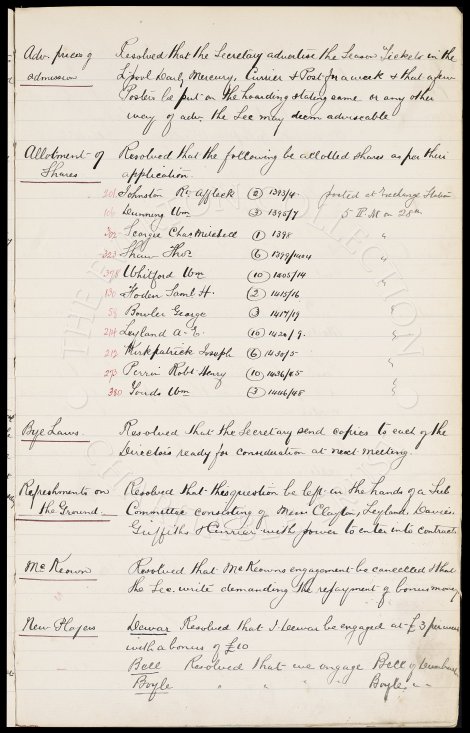 Adv. prices of admission
Resolved that the Secretary advertise the Season Tickets in the
L'pool Daily Mercury, Currier & Post for a week & that a few
Posters be put on the hoarding stating same or any other
way of adv. the Sec may deem adviseable
Allotment of Shares
Resolved that the following be allotted shares as per their
application.
201 Johnston Rt. Affleck (2) 1393/4 posted at Exchange Station
106 Dunning Wm (3) 1395/7 5 P.M on 28th
302 George Chas Mitchell (1) 1398 "
323 Shaw Thos (6) 1399/1404 "
398 Whitford Wm (10) 1405/14 "
130 Foden Saml H. (2) 1415/16 "
58 Bowler George (3) 1417/19 "
Leyland A. (10) 1420/9 "
212 Kirkpatrick Joseph (6) 1430/5 "
273 Perrin Robt Henry (10) 1436/45 "
380 Wm (3) 1446/48 "
Bye Laws.
Resolved that the Secretary send copies to each of the
Directors ready for consideration at next meeting.
Refreshments on the Ground
Resolved that this question be left in the hands of a Sub
Committee consisting of Messrs Clayton, Leyland, Davies
Griffiths & Currier with power to enter into contracts
McKeown
Resolved that McKeowns engagement be cancelled & that
the Sec. write demanding the repayment of bonus money
New Players
Dewar Resolved that J. Dewar be engaged at £3 per week
with a bonus of £10
Bell Resolved that we engage Bell of Dumbarton
Boyle " " " " Boyle "
THE EVERTON COLLECTION